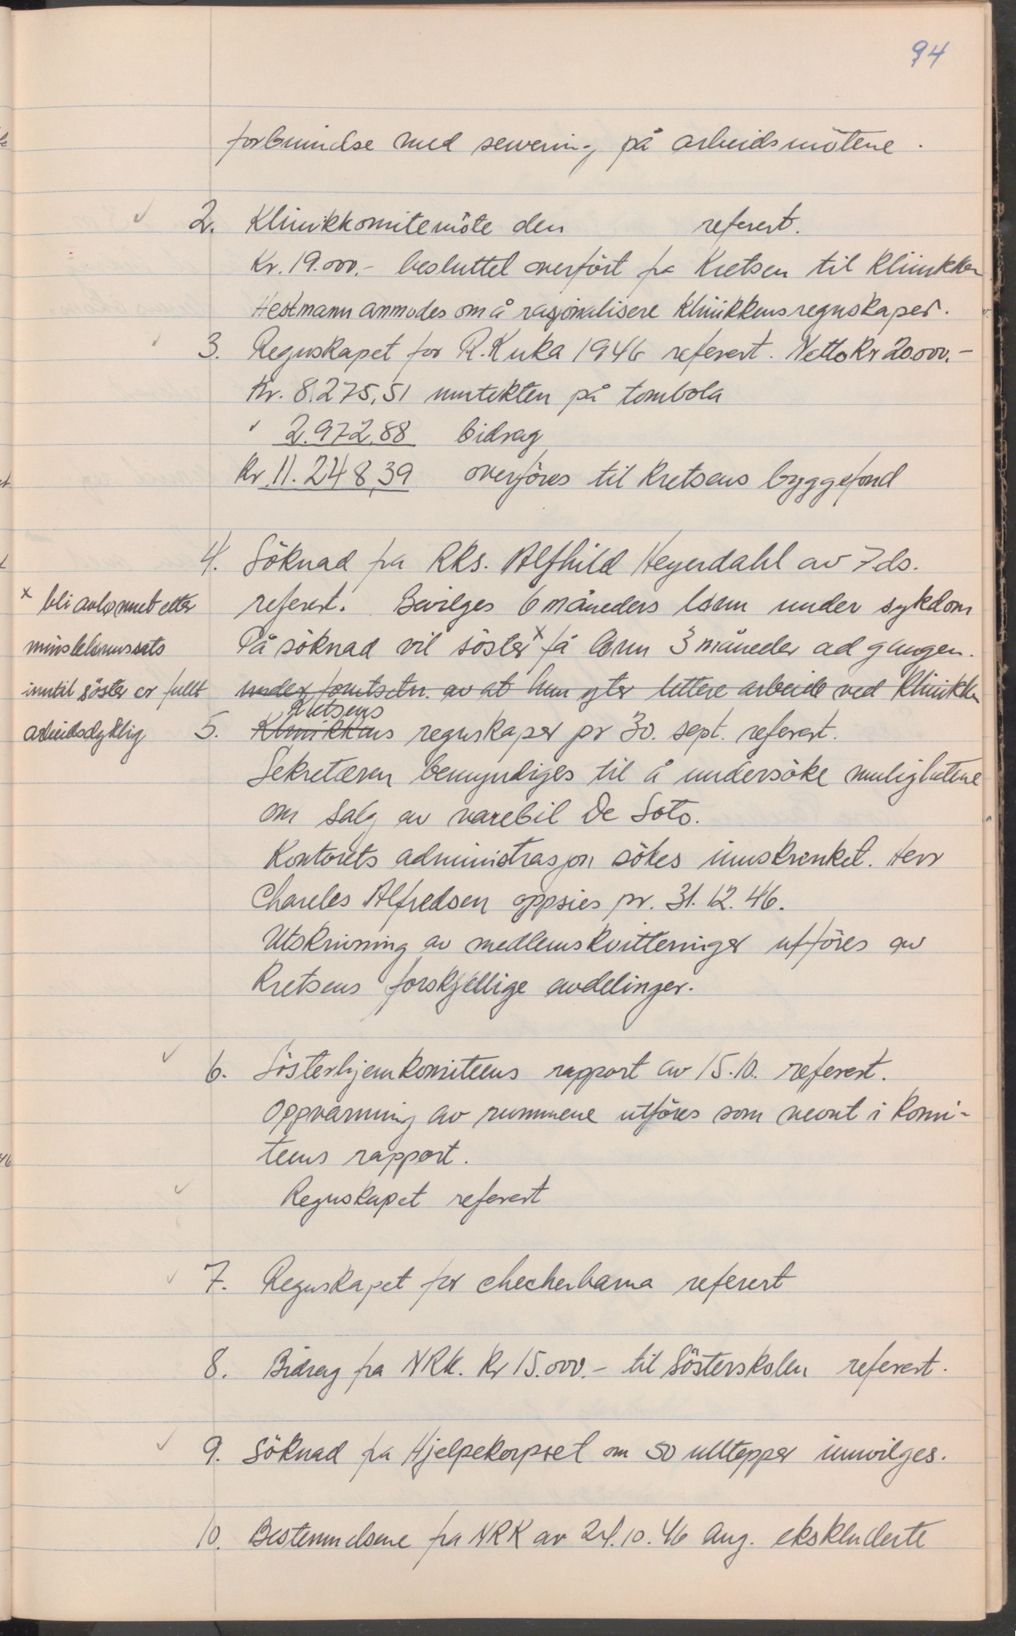 94
forbindelse med servering på arbeidsmötene.
2. Klinikkomitemöte den referert.
Kr. 19.000.- besluttet overfört fra Kretsen til Klinikken
Hestmann anmodes om å rasjonalisere Klinikkens regnskaper.
3. Regnskapet for R.Kuka 1946 referert. Netto Kr 20.000.-
Kr. 8.275,51 inntekten på tombola
" 2.972.88 bidrag
Kr. 11.248,39 overföres til Kretsens byggefond
4. Söknad fra RKs. Alfhild Heyerdahl av 7 ds.
referert. Bevilges 6 måneders lönn under sykdom
På söknad vil söster x få lönn 3 måneder ad gangen.
under forutsetn. av at hun yter lettere arbeide ved Klinikken
x bli avlönnet etter
minstelønnssats
inntil söster er fullt
arbeidsdyktig
Kretsens
5. Klinikkens regnskaper pr 30. sept. referert.
Sekretæren bemyndiges til å undersöke mulighetene
om salg av varebil De Soto.
Kontorets administrasjon sökes innskrenket. Herr
Charles Alfredsen oppsies pr. 31.12.46.
Utskrivning av medlemskvitteringer utföres av
Kretsens forskjellige avdelinger.
6. Sösterhjemkomiteens rapport av 15.10. referert.
Oppvarming av rummene utföres som nevnt i komi-
teens rapport.
Regnskapet referert
7. Regnskapet for checherbarna referert
8. Bidrag fra NRK. Kr 15.000.- til Sösterskolen referert.
9. Söknad fra Hjelpekorpset om 50 ulltepper innvilges.
10. Bestemmelsene fra NRK av 24.10.46 ang. ekskluderte